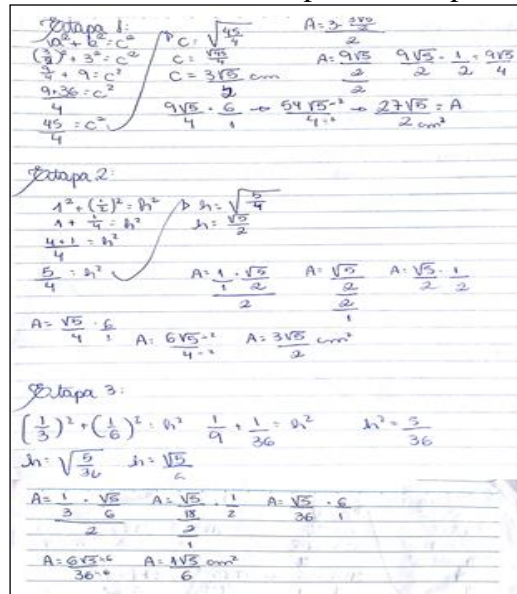 Etapa 1:
a² + b² = c²
(3/2)² + 3² = c²
9/4 + 9 = c²
9+36/4 = c²
45/4 = c²
C = √45/4
C = √45/4
C = 3√5/2 cm
A = 3 · 3√5/2 / 2
A = 9√5/2 / 2
9√5/2 · 1/2 = 9√5/4
9√5/4 · 6/1 → 54√5 ÷2/4 ÷2 → 27√5/2 cm² = A
Etapa 2:
1² + (1/2)² = h²
1 + 1/4 = h²
4+1/4 = h²
5/4 = h²
h = √5/4
h = √5/2
A = 1/1 · √5/2 / 2
A = √5/2 / 2/1
A = √5/2 · 1/2
A = √5/4 · 6/1
A = 6√5 ÷2/4 ÷2
A = 3√5/2 cm²
Etapa 3:
(1/3)² + (1/6)² = h² 1/9 + 1/36 = h² h² = 5/36
h = √5/36 h = √5/6
A = 1/3 · √5/6 / 2
A = √5/18 / 2/1 · 1/2
A = √5/36 · 6/1
A = 6√5 ÷6/36 ÷6
A = 1√5/6 cm²